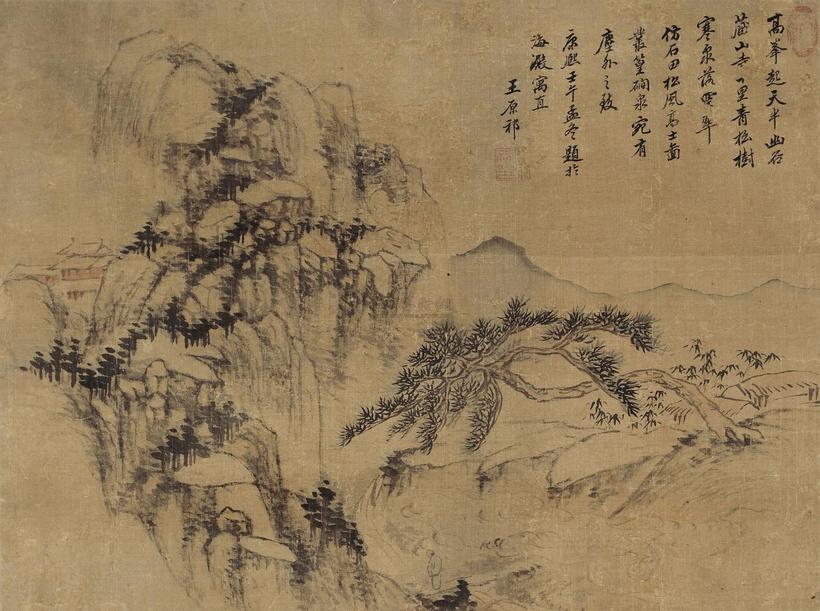 高峯起天半幽谷
藏山寺一里青松樹
寒泉落四
仿石田松風高士圖
叢篁磵泉宛有
塵外之致
康熙壬午孟冬題於
海淀寓直
王原祁